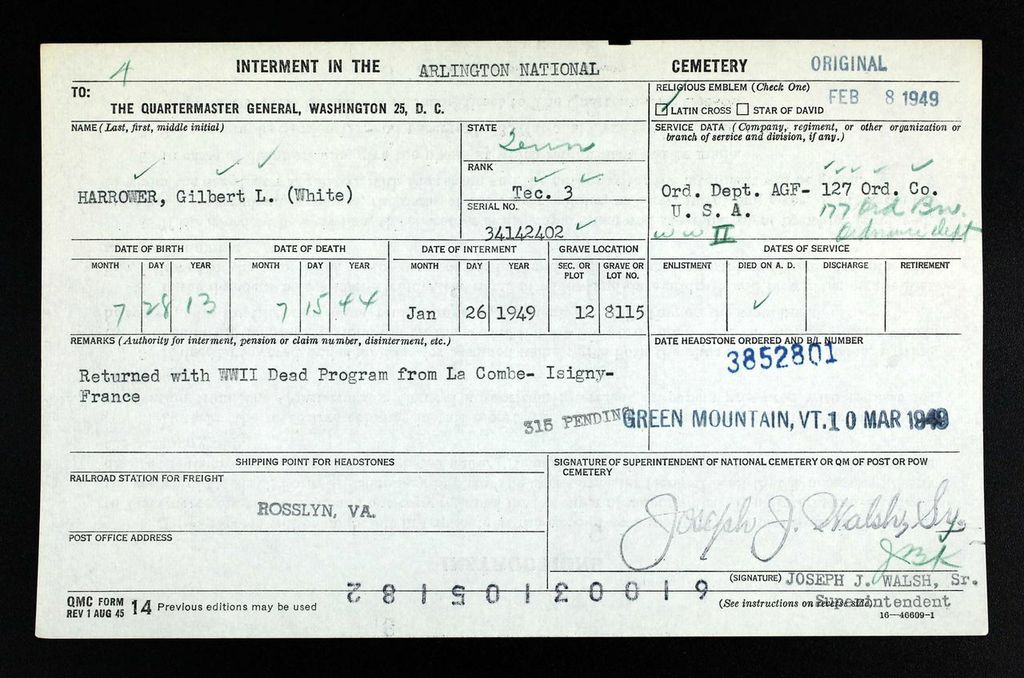 A
INTERMENT IN THE ARLINGTON NATIONAL CEMETERY ORIGINAL
TO:
THE QUARTERMASTER GENERAL, WASHINGTON 25, D. C.
RELIGIOUS EMBLEM (Check One)
FEB 8 1949
LATIN CROSS STAR OF DAVID
NAME (Last, first, middle initial)
HARROWER, Gilbert L. (White)
STATE
Tenn
RANK
Tec. 3
SERIAL NO.
34142402
SERVICE DATA (Company, regiment, or other organization or
branch of service and division, if any.)
Ord. Dept. AGF- 127 Ord. Co.
U. S. A. 177 Ord Bn.
WW II Ordnance dept
DATE OF BIRTH DATE OF DEATH DATE OF INTERMENT GRAVE LOCATION DATES OF SERVICE
MONTH DAY YEAR MONTH DAY YEAR MONTH DAY YEAR SEC. OR PLOT GRAVE OR LOT NO. ENLISTMENT DIED ON A. D. DISCHARGE RETIREMENT
7 28 13 7 15 44 Jan 26 1949 12 8115
REMARKS (Authority for interment, pension or claim number, disinterment, etc.)
Returned with WWII Dead Program from La Combe- Isigny-
France
DATE HEADSTONE ORDERED AND B/L NUMBER
3852801
315 PENDING
GREEN MOUNTAIN, VT. 10 MAR 1949
SHIPPING POINT FOR HEADSTONES
RAILROAD STATION FOR FREIGHT
ROSSLYN, VA.
POST OFFICE ADDRESS
SIGNATURE OF SUPERINTENDENT OF NATIONAL CEMETERY OR QM OF POST OR POW
CEMETERY
Joseph J. Walsh, Sr.
JBK
(SIGNATURE) JOSEPH J. WALSH, Sr.
Superintendent
(See instructions on reverse side)
16—46609-1
QMC FORM
REV 1 AUG 45 14 Previous editions may be used
6100301501182